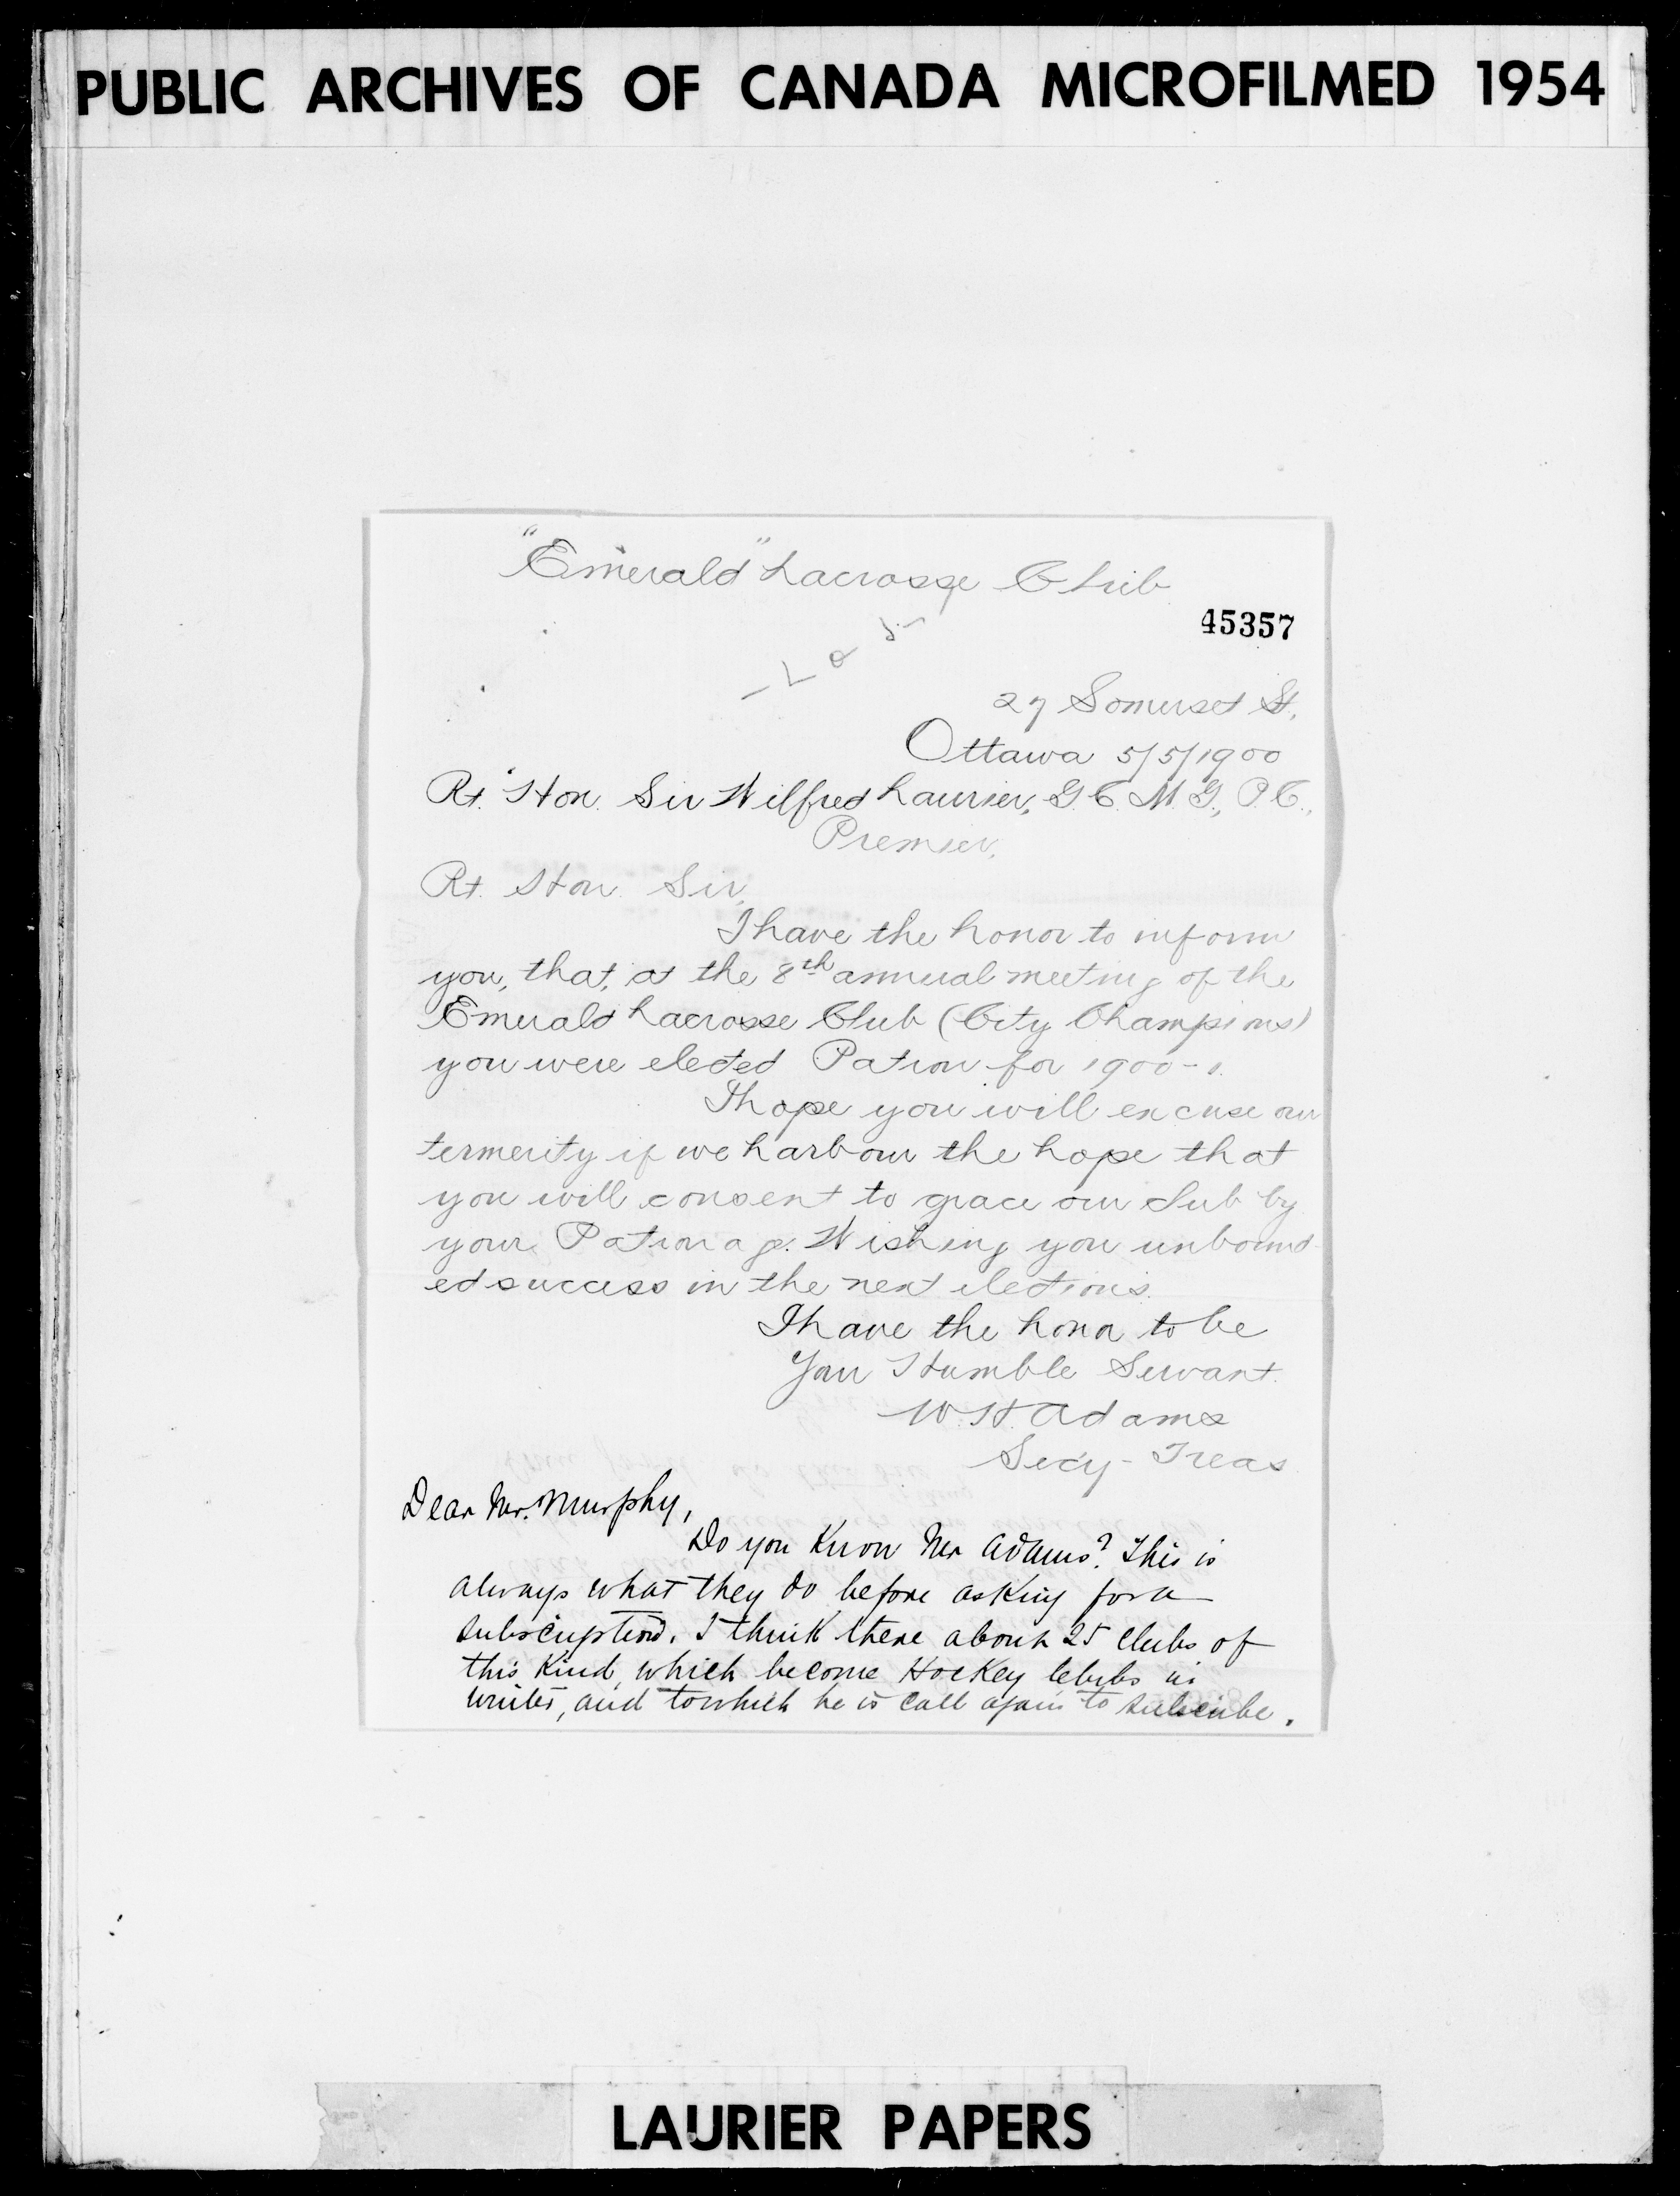 PUBLIC ARCHIVES OF CANADA MICROFILMED 1954
"Emerald" Lacrosse Club
45357
27 Somerset St,
Ottawa 5/5/1900
Rt. Hon. Sir Wilfred Laurier, G.C.M.G., P.C.,
Premier,
Rt. Hon. Sir,
I have the honor to inform
you, that, at the 8th annual meeting of the
Emerald Lacrosse Club (City Champions)
you were elected Patron for 1900-1.
I hope you will excuse our
termerity if we harbour the hope that
you will consent to grace our club by
your Patronage. Wishing you unbound-
ed success in the next elections.
I have the honor to be
Your Humble Servant.
W. H. Adams
Secy-Treas
Dear Mr. Murphy,
Do you know Mr Adams? This is
always what they do before asking for a
subscription. I think there about 25 clubs of
this kind, which become Hockey clubs in
winter, and to which he is call again to subscribe.
LAURIER PAPERS